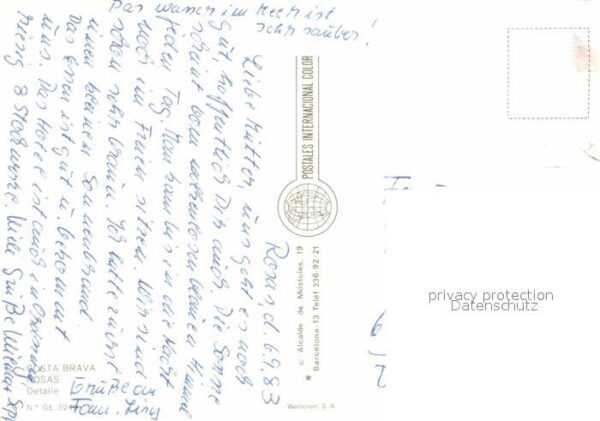 Das Wasser im Meer ist
sehr sauber!
Rosas, d. 6.9.83
Liebe Mutter, uns geht es noch
gut, hoffentlich Dir auch. Die Sonne
scheint vom wolkenlosen blauen Himmel
jeden Tag. Man kann bis in die Nacht
noch im Freien sitzen. Wir sind
schon sehr braun. Ich hatte zuerst
einen kleinen Sonnenbrand.
Das Essen ist gut u. bekommt
uns. Das Hotel ist auch in Ordnung,
8 Stockwerke. Viele Grüße
Grüße an
Fam.
COSTA BRAVA
ROSAS
Detalle
N.º GE 32
POSTALES INTERNACIONAL COLOR
c/ Alcalde de Móstoles, 19
Barcelona-13 Telef. 236 92 21
privacy protection
Datenschutz